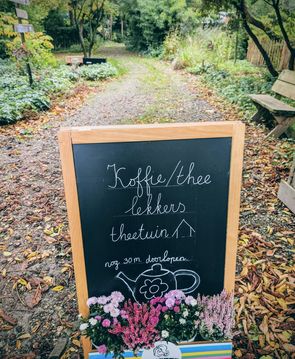 Koffie/thee
lekkers
theetuin
nog 30 m doorlopen